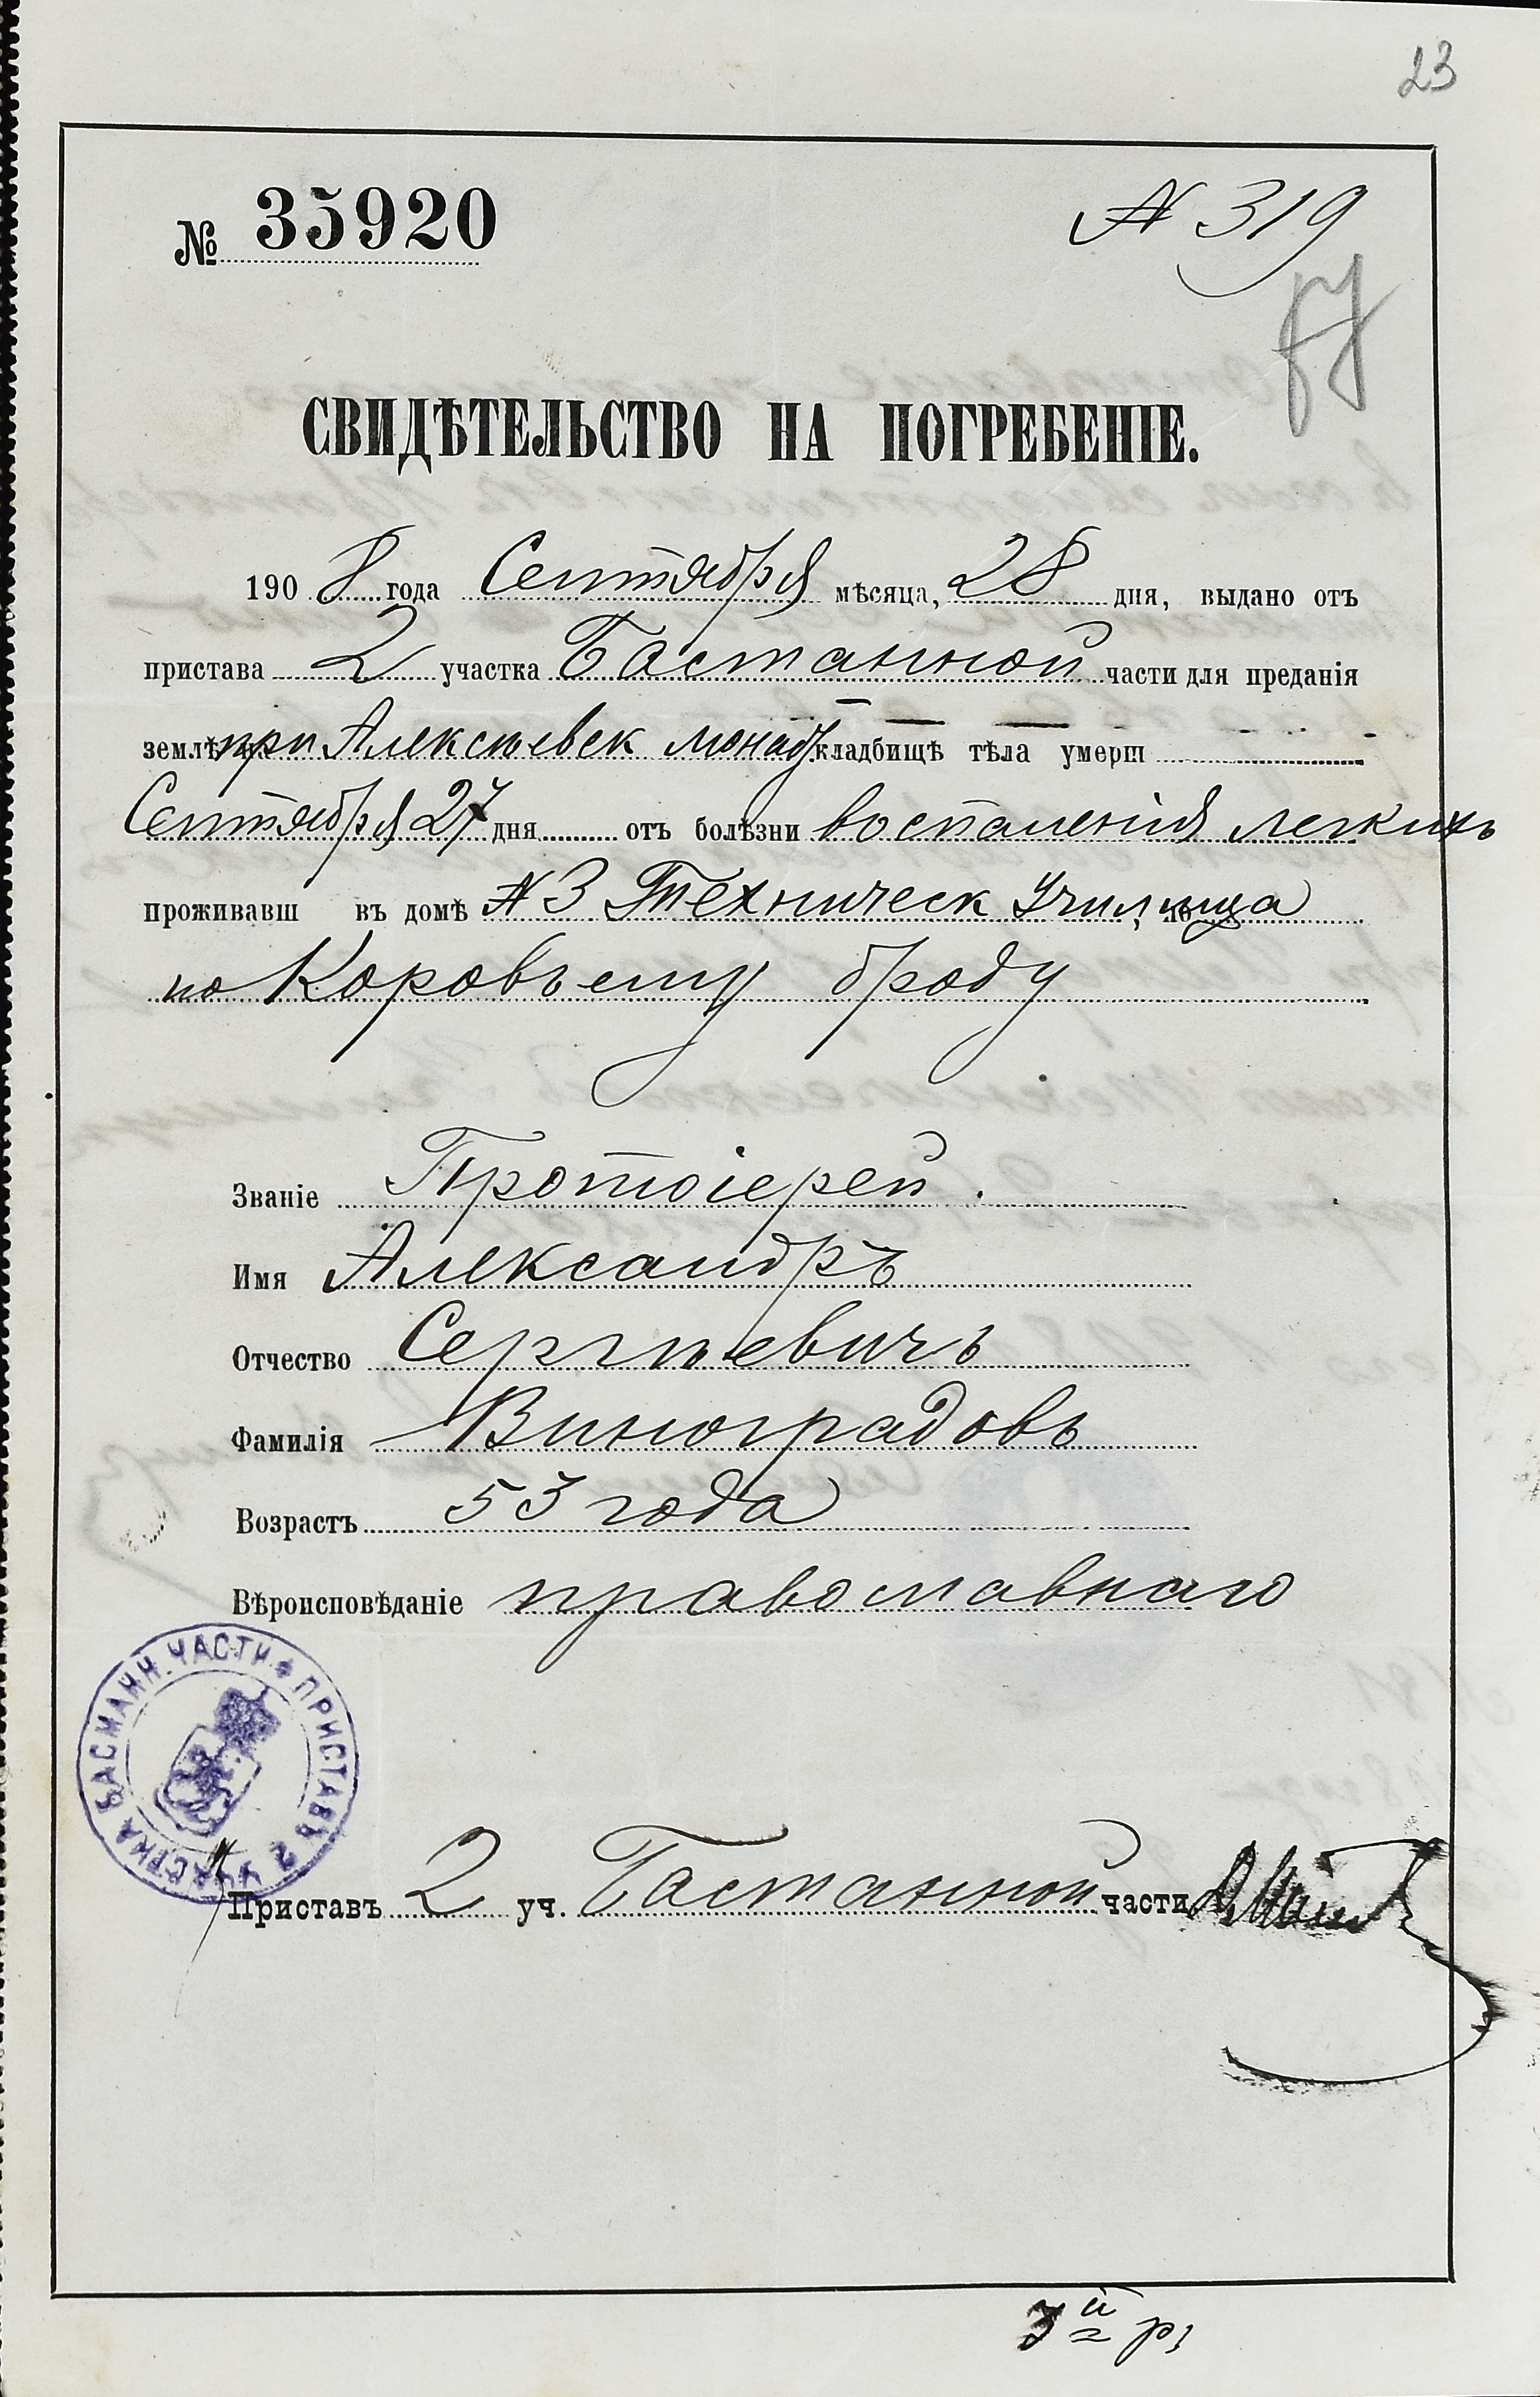 23
№ 35920
№ 319
СВИДѢТЕЛЬСТВО НА ПОГРЕБЕНІЕ.
1908 года Сентября мѣсяца, 28 дня, выдано отъ
пристава 2 участка Басманной части для преданія
землѣ при Алексѣевск монаст кладбищѣ тѣла умерш
Сентября 27 дня отъ болѣзни воспаленія легкихъ
проживавш въ домѣ № 3 Техническ Училища
по Коровьему броду
Званіе Протоіерей.
Имя Александръ
Отчество Сергѣевичъ
Фамилія Виноградовъ
Возрастъ 53 года
Вѣроисповѣданіе православнаго
ПРИСТАВЪ 2 УЧАСТКА БАСМАНН. ЧАСТИ
Приставъ 2 уч. Басманной части
3й р.